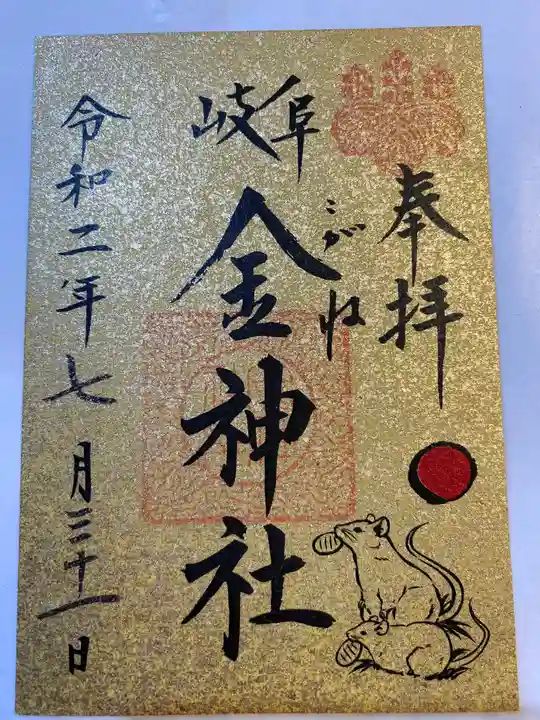 奉拝
岐阜
こがね
金神社
令和二年七月三十一日